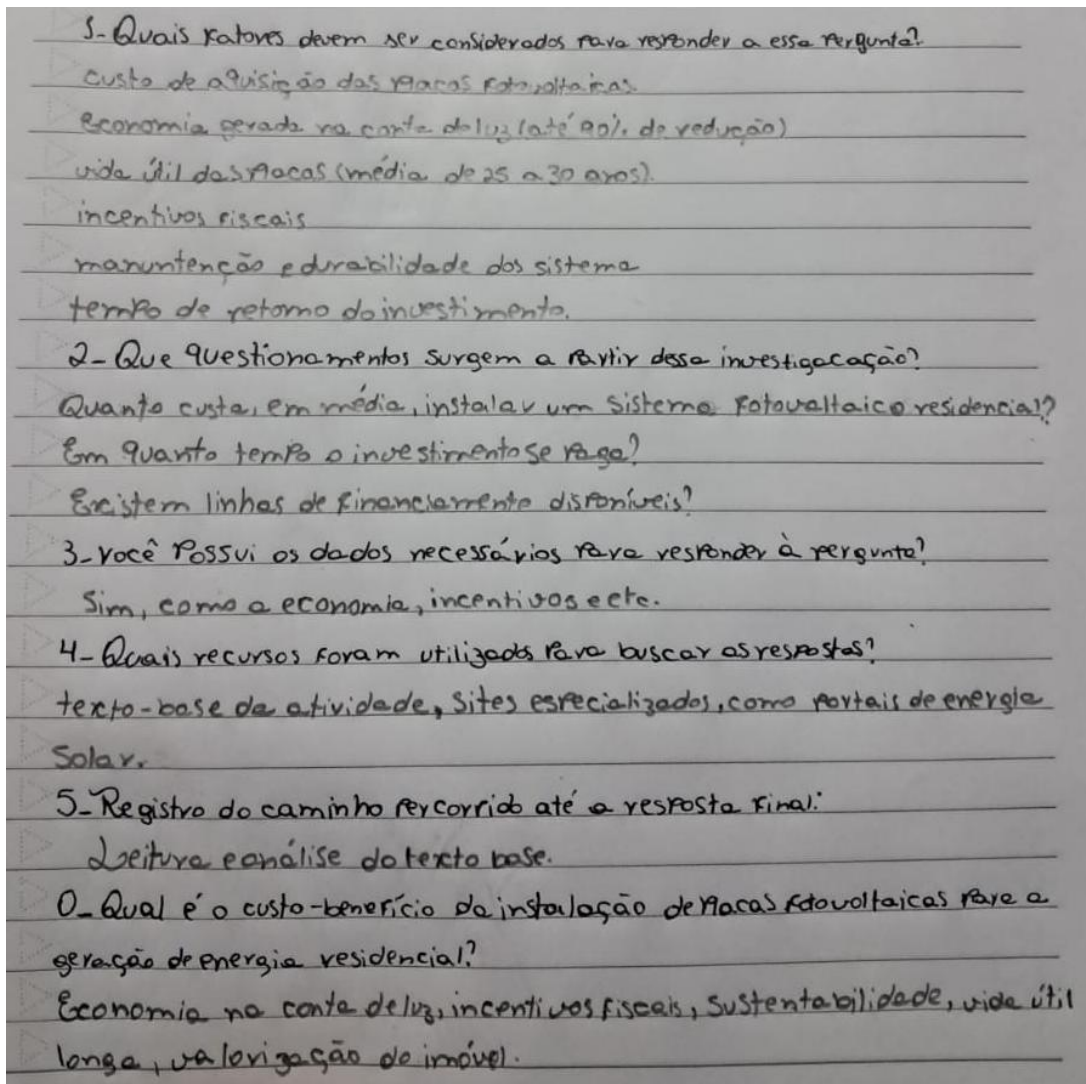 1- Quais fatores devem ser considerados para responder a essa pergunta?
custo de aquisição das placas fotovoltaicas.
Economia gerada na conta de luz (até 90% de redução)
vida útil das placas (média de 25 a 30 anos).
incentivos fiscais
manuntenção e durabilidade dos sistema
tempo de retorno do investimento.
2- Que questionamentos surgem a partir dessa investigacação?
Quanto custa, em média, instalar um sistema fotovoltaico residencial?
Em quanto tempo o investimento se paga?
Existem linhas de financiamento disponíveis?
3- você possui os dados necessários para responder à pergunta?
Sim, como a economia, incentivos e etc.
4- Quais recursos foram utilizados para buscar as respostas?
texto-base da atividade, sites especializados, como portais de energia
solar.
5- Registro do caminho percorrido até a resposta final:
Leitura e análise do texto base.
0- Qual é o custo-benefício da instalação de placas fotovoltaicas para a
geração de energia residencial?
Economia na conta de luz, incentivos fiscais, sustentabilidade, vida útil
longa, valorização do imóvel.